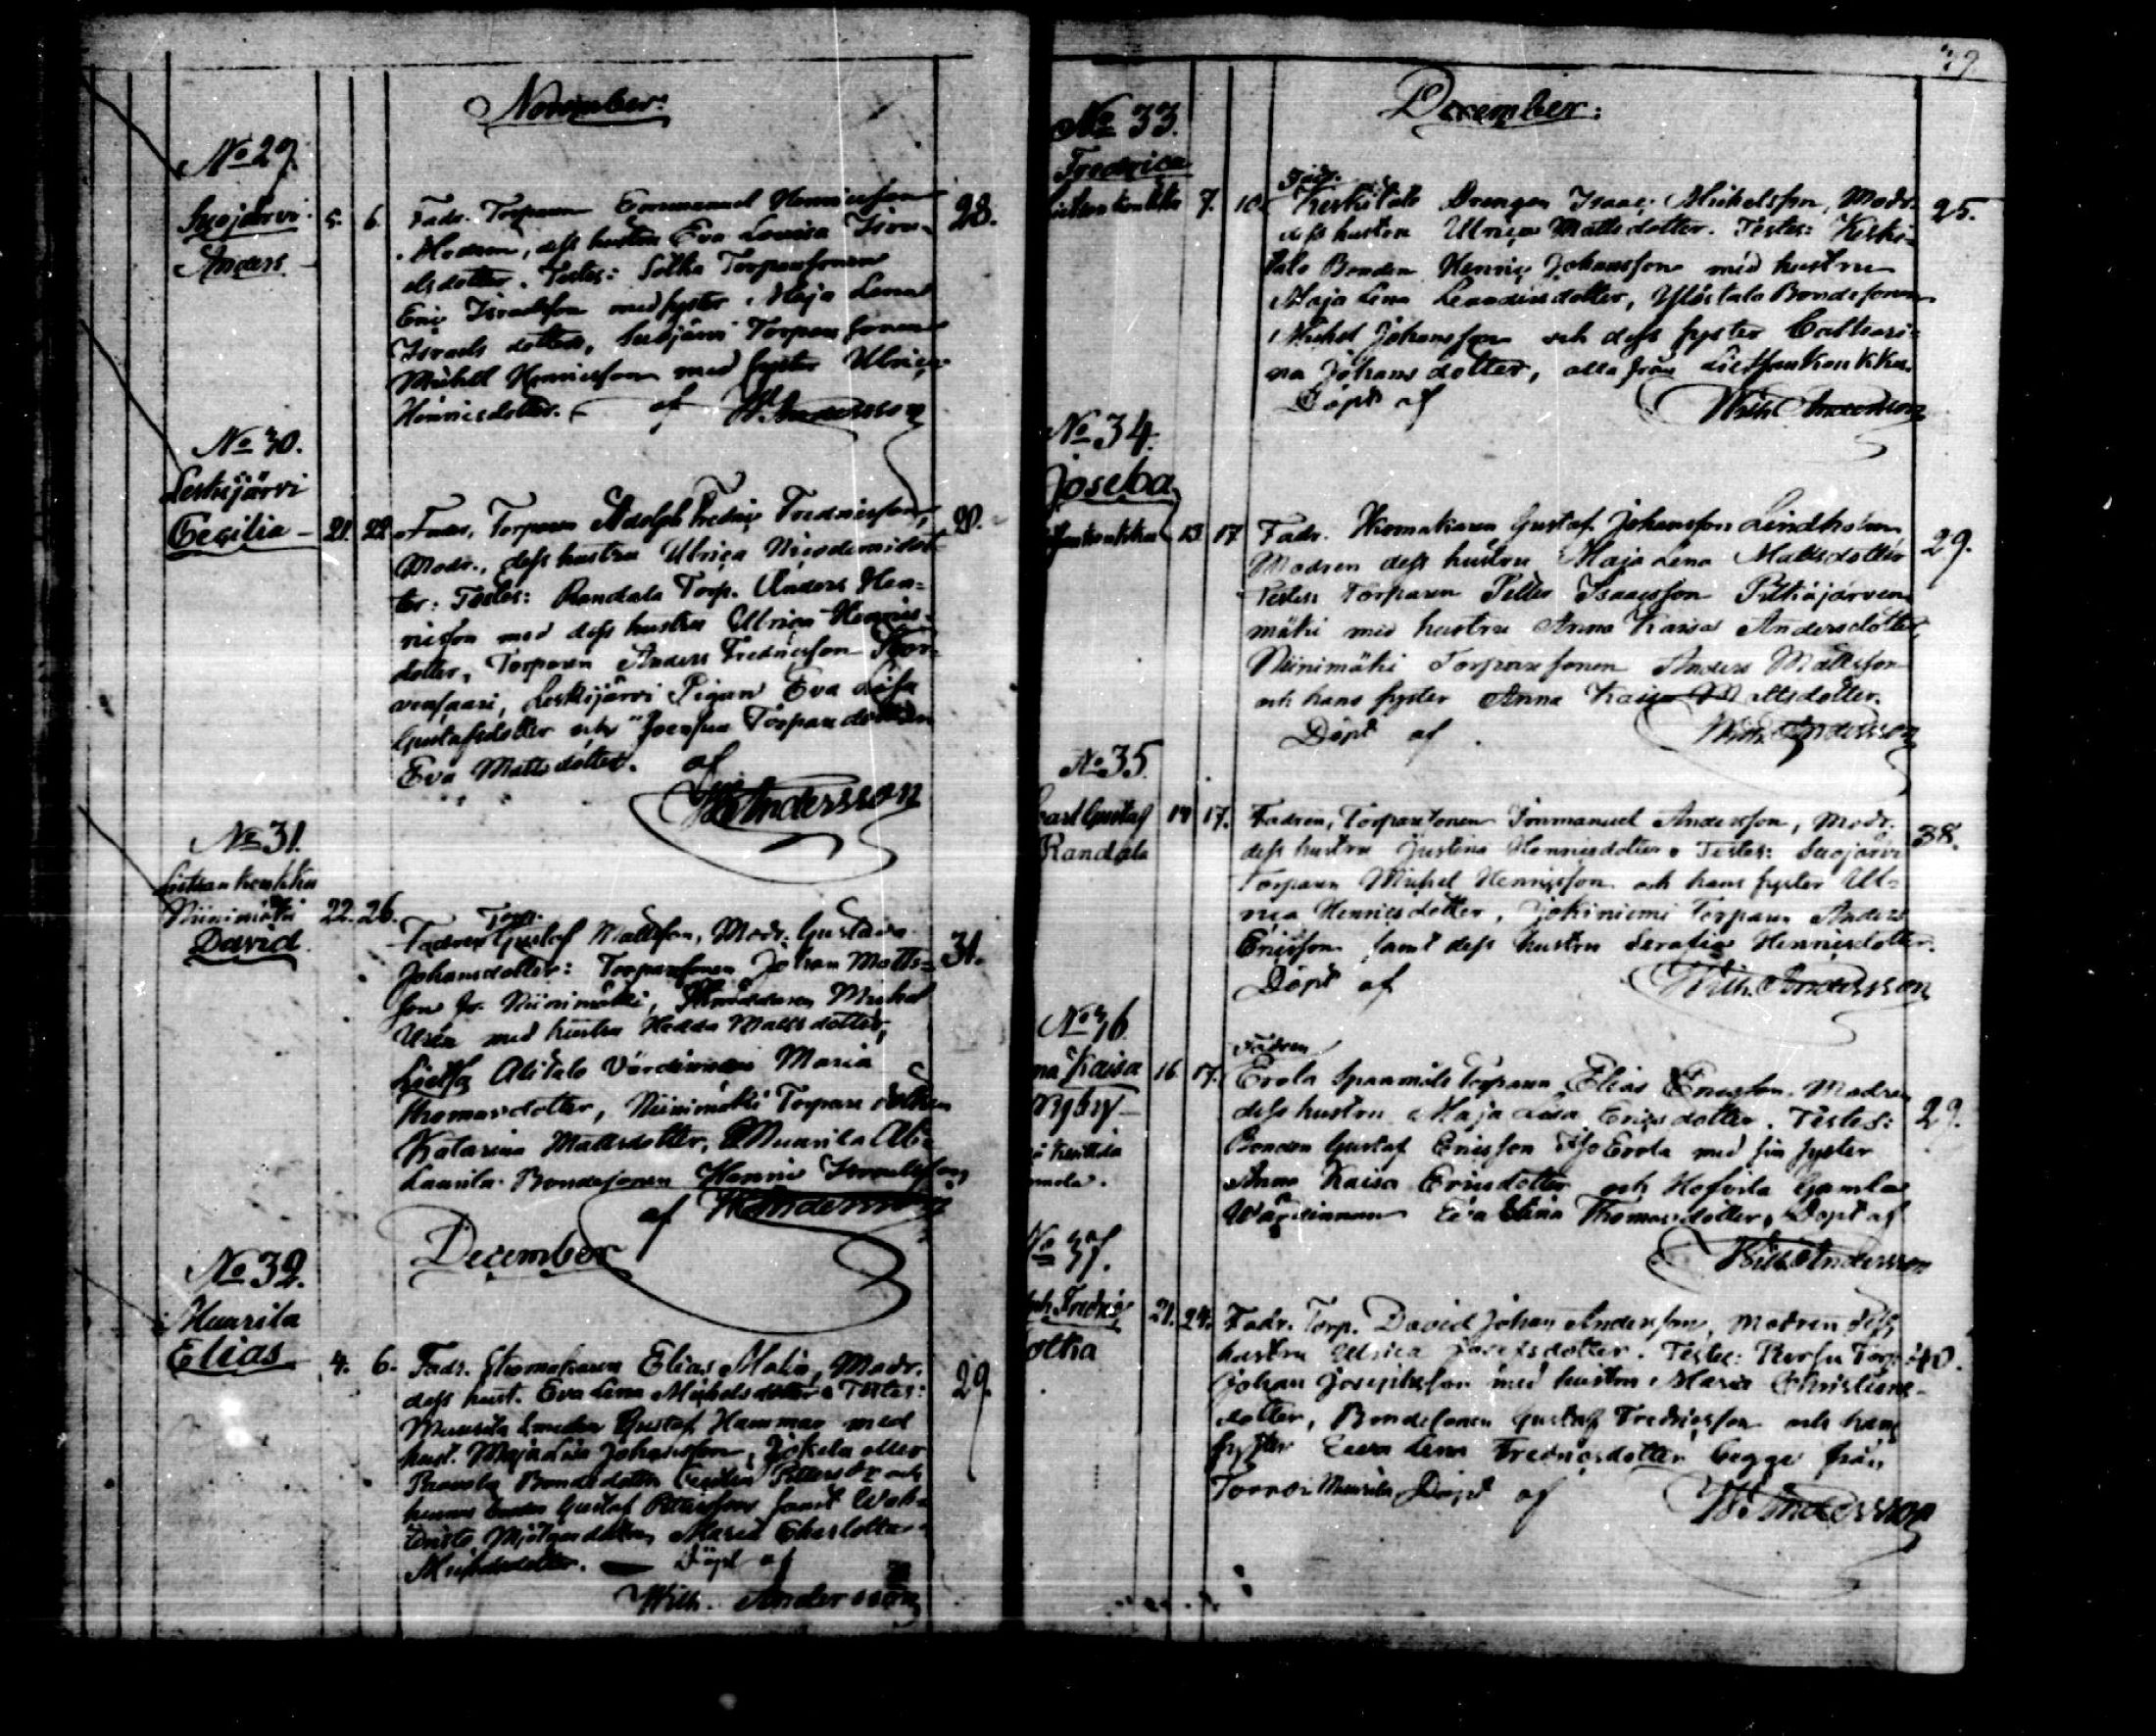 November:
No 29.
Suojärvi
Anders
5. 6.
Fadr. Torparen Emmanuel Henricsson
Modren, dess hustru Eva Lovisa Isra-
elsdotter. Testes: Solka Torparesonen
Eric Israelsson med syster Maja Lena
Israels dotter, Suojärvi Torparesonen
Michel Henricsson med syster Ulrica
Henricsdotter. af W. Andersson
28.
No 30.
Leskijärvi
Cecilia
21. 22.
Fadr. Torparen Adolph Fredric Fredricsson,
Modr., dess hustru Ulrica Nicodemidot-
ter: Testes: Randala Torp. Anders Hen-
ricsson med dess hustru Ulrica Henrics-
dotter, Torparen Anders Fredricsson
Leskijärvi Pigan Eva Lisa
Gustafsdotter och Joensuu Torpare dottren
Eva Mattsdotter. af
W. Andersson
No 31.
Lietsankonkka
Niinimäki
David
22. 26.
Torp.
Fadren Gustaf Mattsson, Modr: Gustava
Johansdotter: Torparesonen Johan Matts-
son fr. Niinimäki, Michel
med hustru Hedda Mattsdotter,
Alitalo Värdinnan Maria
Thomasdotter, Niinimäki Torpare dottren
Katarina Mattsdotter, Muurila Ali-
Laurila Bondesonen Henric Israelsson
af W. Andersson
31.
December
No 32.
Muurila
Elias
4. 6.
Fadr. Skomakaren Elias Malin, Modr.
dess hust. Eva Lena Michelsdotter. Testes:
Muurila Smeden Gustaf Hammar med
hust. Maja Lisa Johansson, Jokela eller
Bondedotter Cecilia Pettersdr och
hennes Gustaf Pettersson samt
Maria Charlotta
Michelsdotter. Döpt af
Wilh. Andersson
29.
39
December:
No 33.
Fredrica
7. 10.
Fadr.
Keskitalo Drengen Isaac Michelsson, Modr.
dess hustru Ulrica Mattsdotter. Testes: Keski-
talo Bonden Henric Johansson med hustru
Maja Lena Leandersdotter, Ylöstalo Bondesonen
Michel Johansson och dess syster Cathari-
na Johansdotter, alla från Lietsankonkka.
Döpt af Wilh. Andersson
25.
No 34.
Josefa
13 17
Fadr. Skomakaren Gustaf Johansson Lindholm
Modren dess hustru Maja Lena Mattsdotter
Testes: Torparen Petter Isaacsson Pitkäjärven-
mäki med hustru Anna Kaisa Andersdotter,
Niinimäki Torparesonen Anders Mattsson
och hans syster Anna Kaisa Mattsdotter.
Döpt af Wilh. Andersson
29.
No 35.
Carl Gustaf
Randala
14 17.
Fadren, Torparesonen Immanuel Andersson, Modr.
dess hustru Justina Henricsdotter. Testes: Suojärvi
Torparen Michel Henricsson och hans syster Ul-
rica Henricsdotter, Jokiniemi Torparen Anders
Ericsson samt dess hustru Serafia Henricsdotter.
Döpt af Wilh. Andersson
38.
No 36
na Kaisa
16 17.
Fadren
Erola Spanmåls Torparen Elias Ericsson. Modren
dess hustru Maja Lisa Ericsdotter. Testes:
Bonden Gustaf Ericsson Iso Erola med sin syster
Anna Kaisa Ericsdotter och Hofvila Gamla
Wärdinnan Eva Stina Thomasdotter, Döpt af
Wilh. Andersson
29.
No 37.
ph Fredric
olka
21. 24.
Fadr. Torp. David Johan Andersson, Modren dess
hustru Ulrica Josefsdotter. Testes: Torp:
Johan Josephsson med hustru Maria Christians-
dotter, Bondesonen Gustaf Fredricsson och hans
syster Eeva Lena Fredricsdotter begge från
Muurila Döpt af W. Andersson
40.